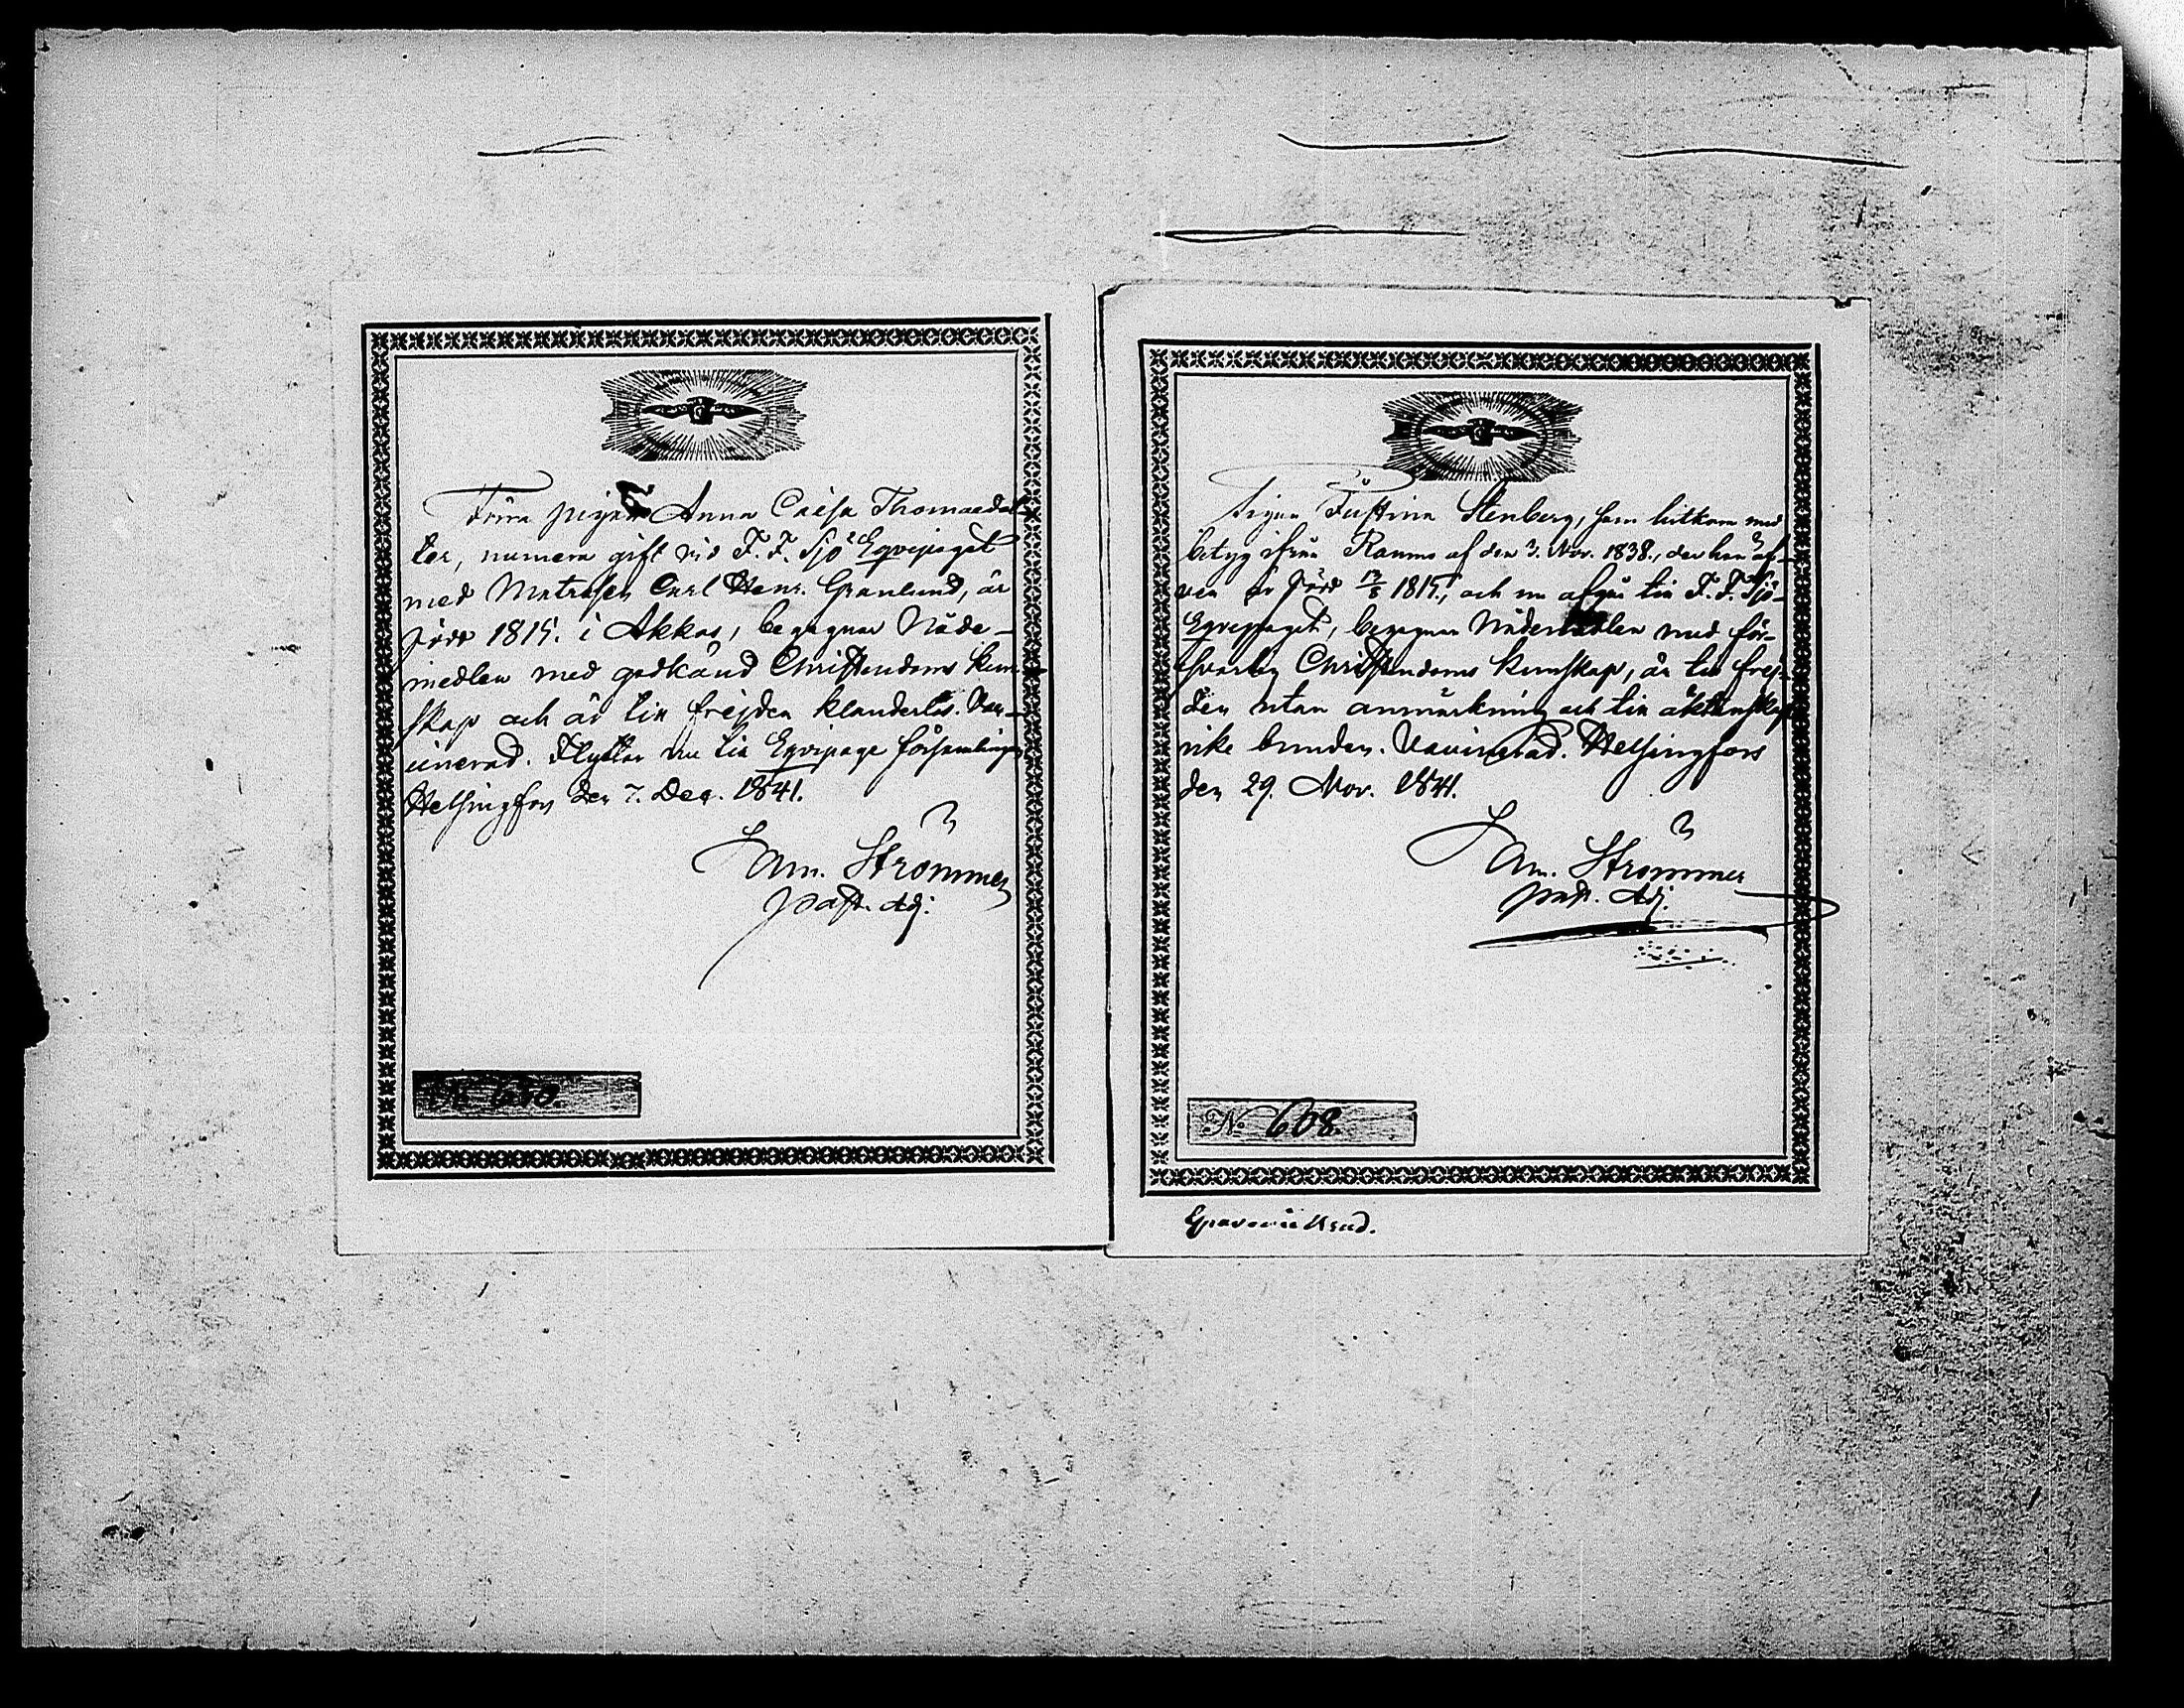 Förra pigan Anna Caisa Thomasdot-
ter, numera gift vid F. F. Sjö Eqvipaget
med Matrosen Carl Henr. Granlund, är
född 1815. i Akkas, begagnar Nåde-
medlen med godkänd Christendoms kun-
skap och är till frejden klanderlös. Vac-
cinerad. Flyttar nu till Eqvipage församlingen
Helsingfors den 7. Dec. 1841.
Sam. Strömmer
Past. Adj.
Pigan Justina Stenberg, som hitkom med
betyg ifrån Raumo af den 3. Nov. 1838., der hon äf-
ven är född 1815., och nu afgår till F. F. Sjö-
Eqvipaget, begagnar Nådemedlen med för-
svarlig Christendoms kunskap, är till frej-
den utan anmärkning och till äktenskap
icke bunden. Vaccinerad. Helsingfors
den 29. Nov. 1841.
Sam. Strömmer
Past. Adj.
№ 608.